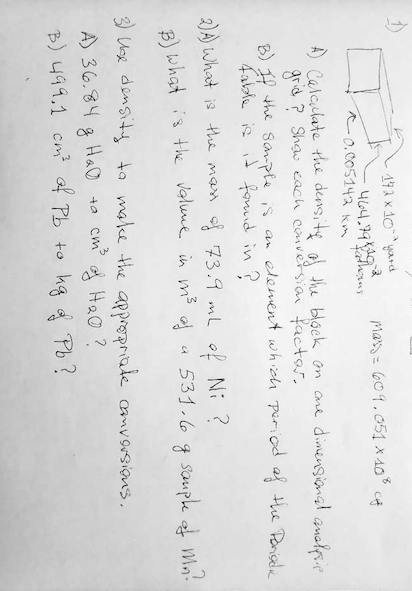 1)
142 x 10⁻² yard
464.79 x 10⁻²
fathoms
0.005142 km
mass = 609.051 x 10⁸ cg
A) Calculate the density of the block on one dimensional analysis
grid? Show each conversion factor.
B) If the sample is an element which period of the Periodic
table is it found in?
2) A) What is the mass of 73.9 mL of Ni?
B) What is the volume in m³ of a 531.6 g sample of Mn?
3) Use density to make the appropriate conversions.
A) 36.84 g H2O to cm³ of H2O?
B) 499.1 cm³ of Pb to kg of Pb?